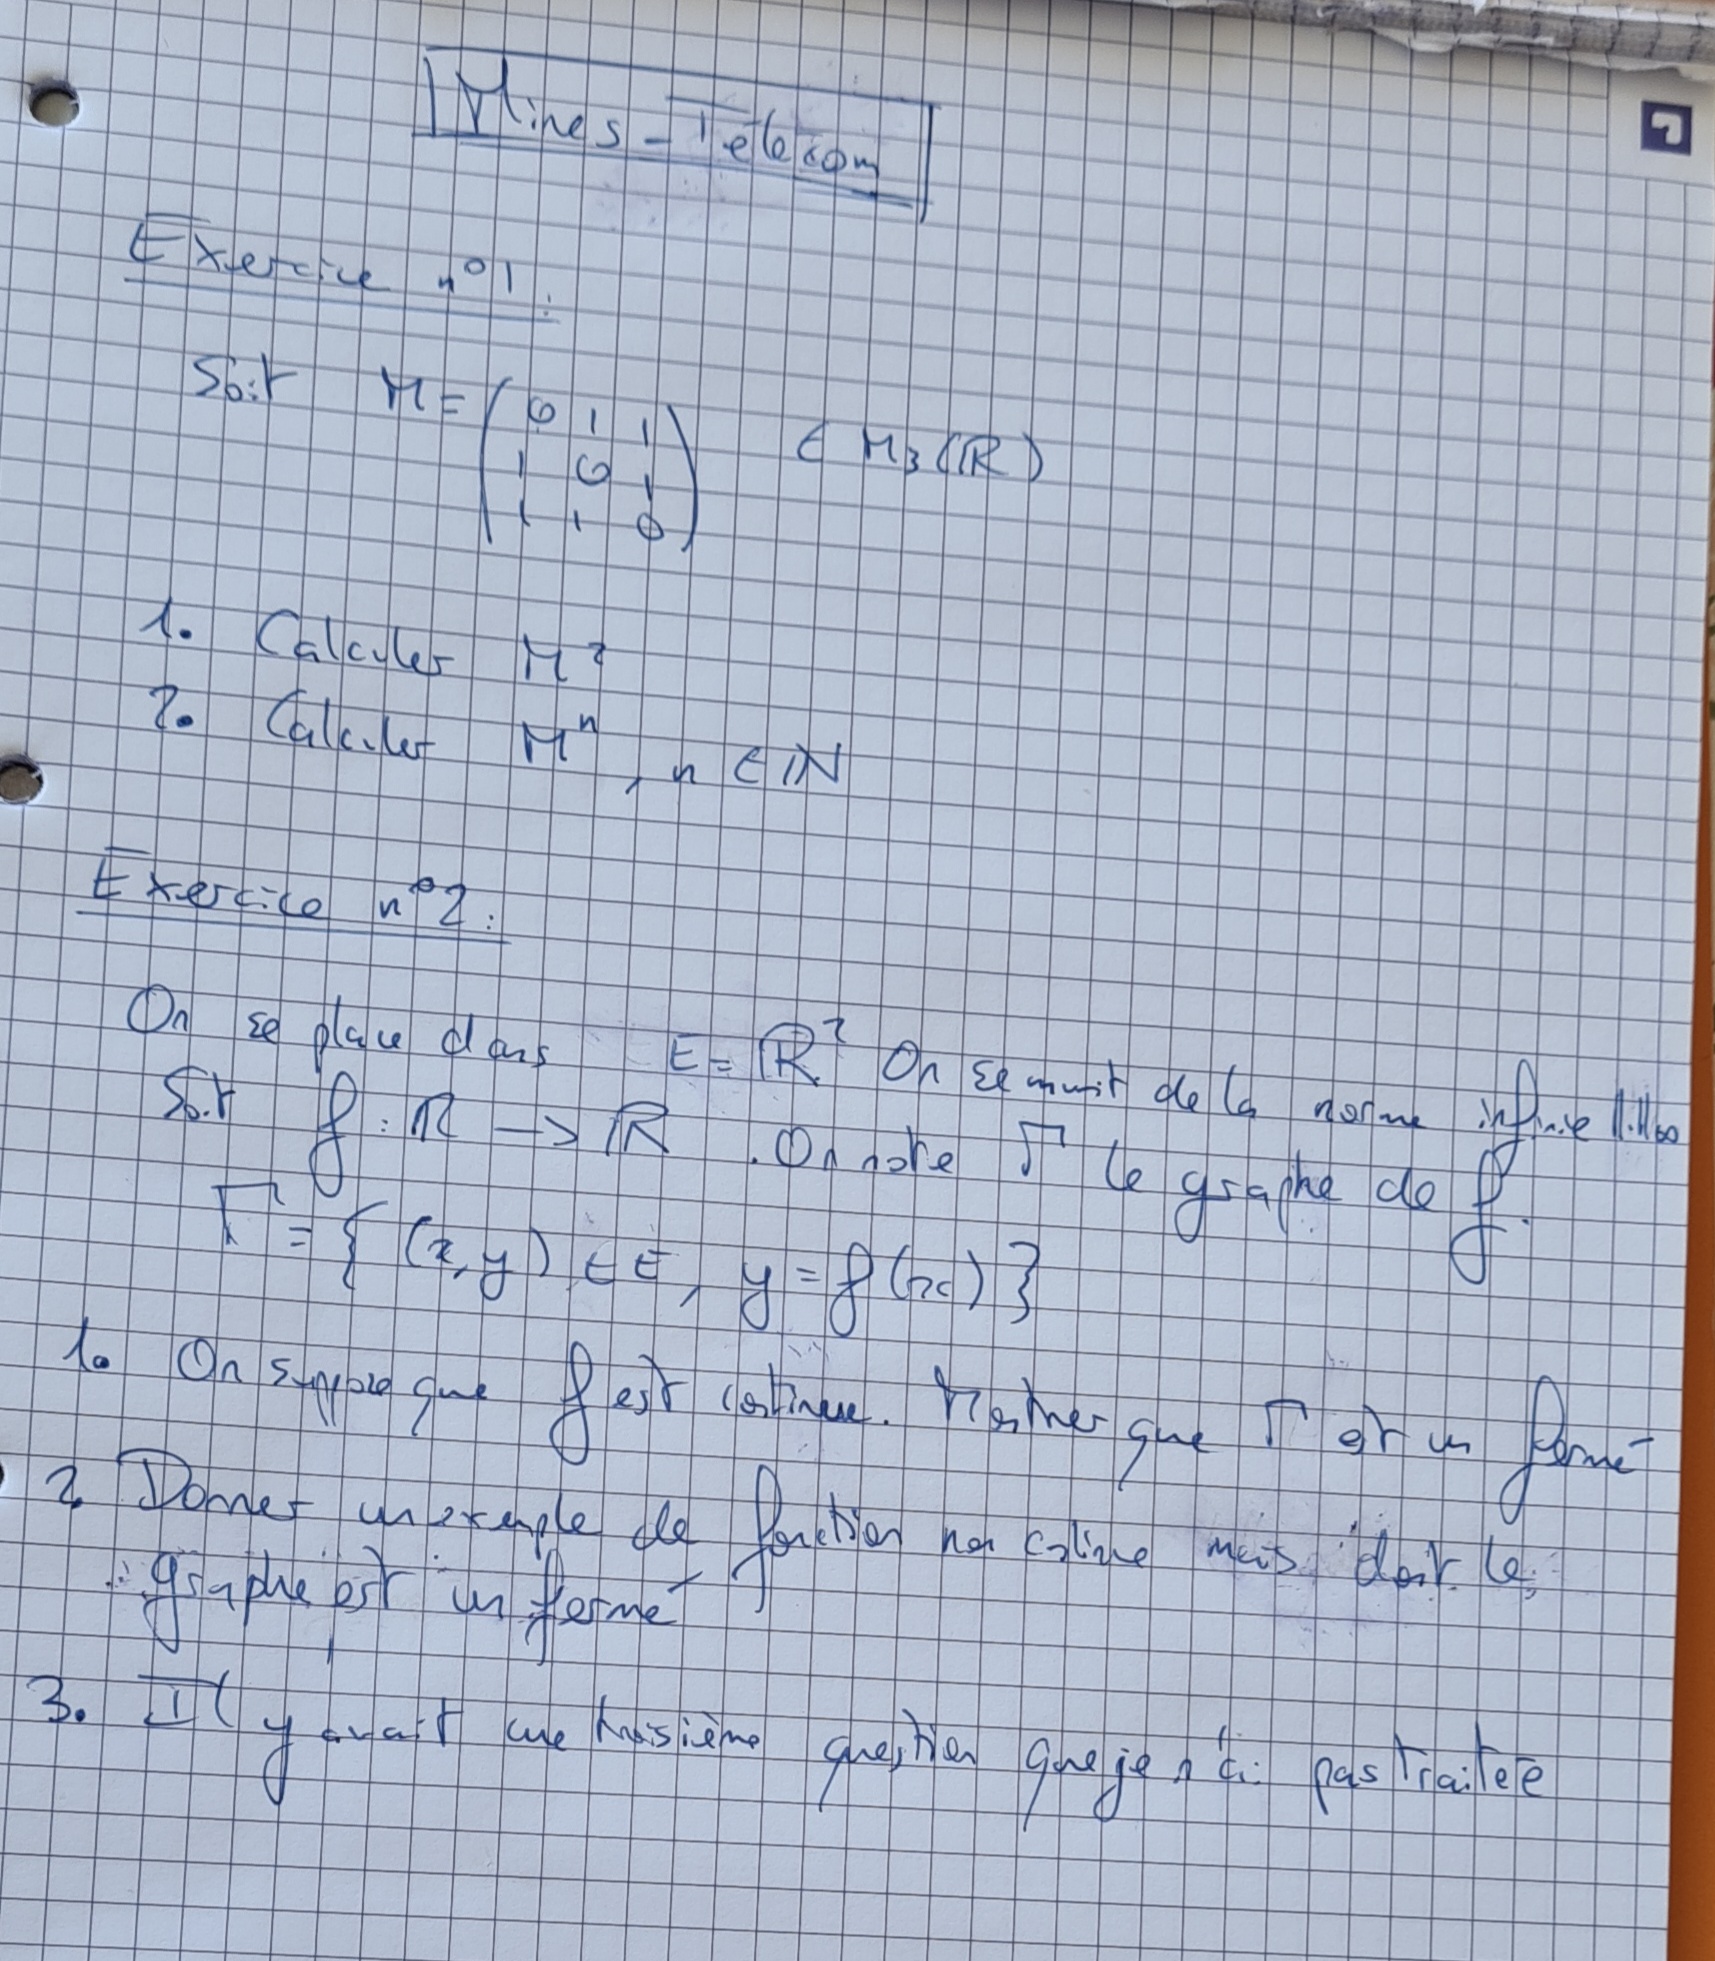 Mines-Télécom
Exercice n°1:
Soit M = (0 1 1
1 0 1
1 1 0) ∈ M3(R)
1. Calculer M²
2. Calculer Mⁿ, n ∈ IN
Exercice n°2:
On se place dans E = R² On se munit de la norme infinie ||.||∞
Soit f : R -> R. On note Γ le graphe de f.
Γ = { (x,y) ∈ E, y = f(x) }
1. On suppose que f est continue. Montrer que Γ est un fermé
2. Donner un exemple de fonction non continue mais dont le
graphe est un fermé
3. Il y avait une troisième question que je n'ai pas traitée